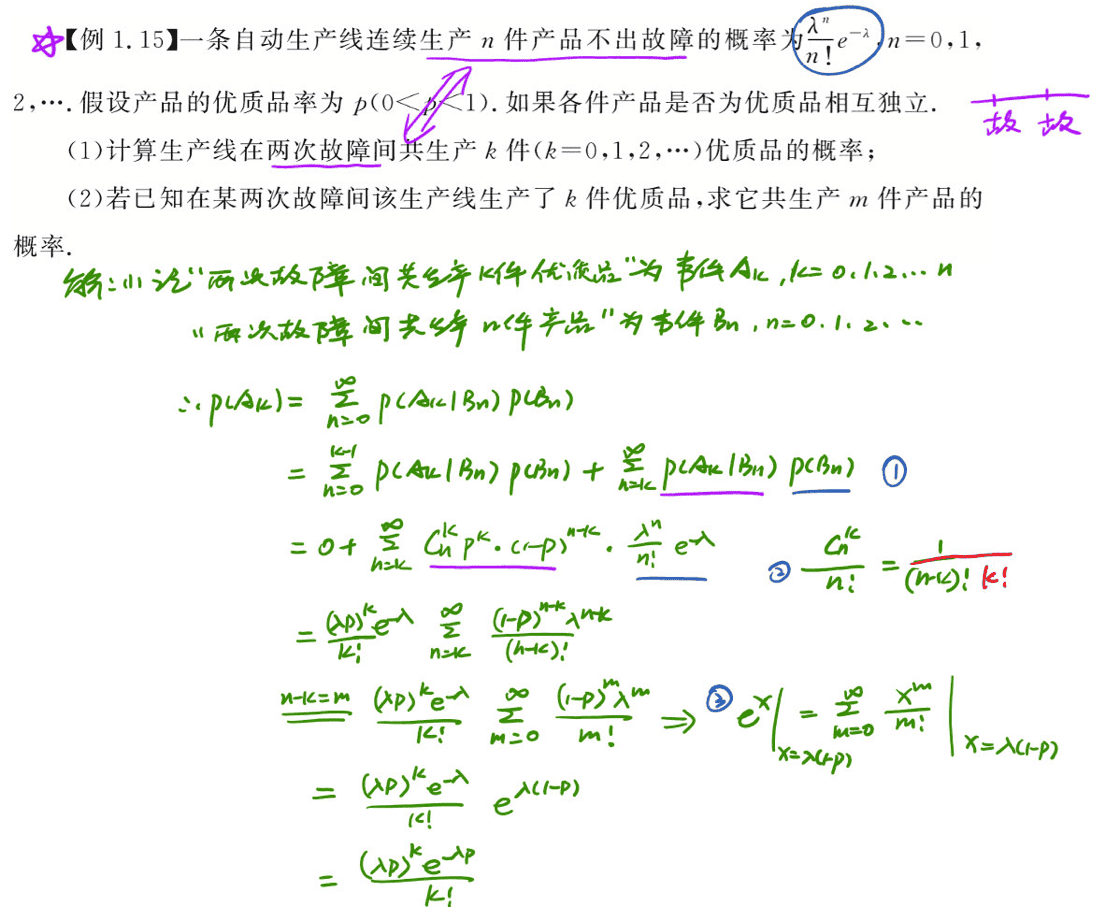 【例 1.15】一条自动生产线连续生产 n 件产品不出故障的概率为 $\frac{\lambda^n}{n!}e^{-\lambda}$, n=0,1,
2,…. 假设产品的优质品率为 p(0<p<1). 如果各件产品是否为优质品相互独立.
故 故
(1)计算生产线在两次故障间共生产 k 件(k=0,1,2,…)优质品的概率;
(2)若已知在某两次故障间该生产线生产了 k 件优质品,求它共生产 m 件产品的
概率.
解:(1) 设"两次故障间共生产k件优质品"为事件 $A_k$, k=0.1.2… n
"两次故障间共生产 n件产品"为事件 $B_n$, n=0.1.2.…
∴ $P(A_k) = \sum_{n=0}^{\infty} P(A_k|B_n) P(B_n)$
$= \sum_{n=0}^{k-1} P(A_k|B_n) P(B_n) + \sum_{n=k}^{\infty} P(A_k|B_n) P(B_n)$ ①
$= 0 + \sum_{n=k}^{\infty} C_n^k p^k \cdot (1-p)^{n-k} \cdot \frac{\lambda^n}{n!} e^{-\lambda}$ ② $\frac{C_n^k}{n!} = \frac{1}{(n-k)! k!}$
$= \frac{(\lambda p)^k}{k!} e^{-\lambda} \sum_{n=k}^{\infty} \frac{(1-p)^{n-k} \lambda^{n-k}}{(n-k)!}$
n-k=m $\frac{(\lambda p)^k e^{-\lambda}}{k!} \sum_{m=0}^{\infty} \frac{(1-p)^m \lambda^m}{m!}$ ⇒ ③ $e^x |_{x=\lambda(1-p)} = \sum_{m=0}^{\infty} \frac{x^m}{m!} |_{x=\lambda(1-p)}$
$= \frac{(\lambda p)^k e^{-\lambda}}{k!} e^{\lambda(1-p)}$
$= \frac{(\lambda p)^k e^{-\lambda p}}{k!}$